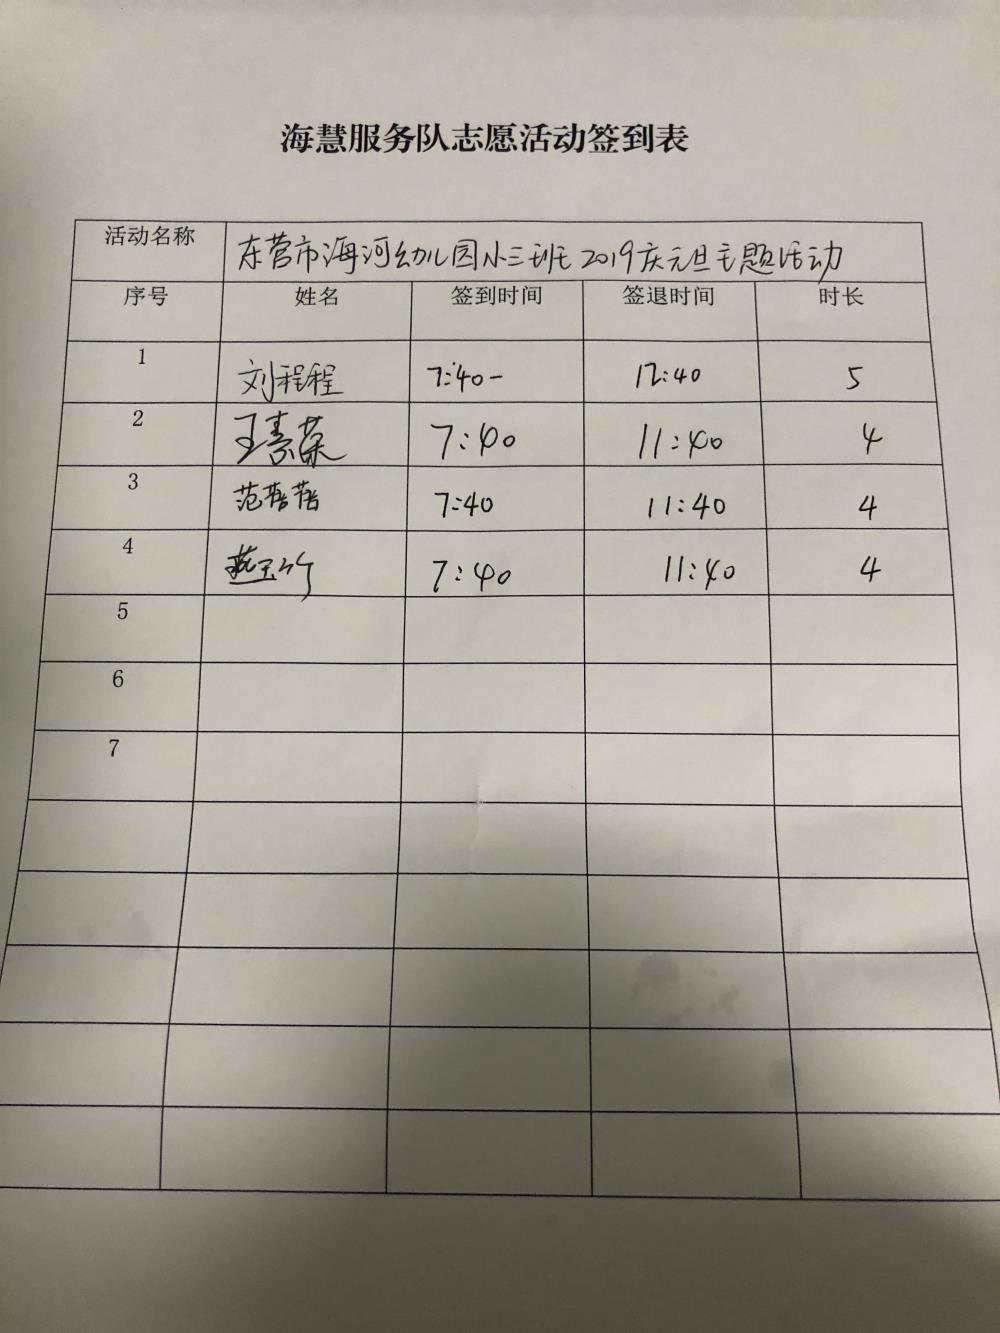 海慧服务队志愿活动签到表
活动名称 东营市海河幼儿园小三班2019庆元旦主题活动
序号 姓名 签到时间 签退时间 时长
1 刘程程 7:40- 12:40 5
2 王素荣 7:40 11:40 4
3 范蓓蓓 7:40 11:40 4
4 燕玉竹 7:40 11:40 4
5
6
7